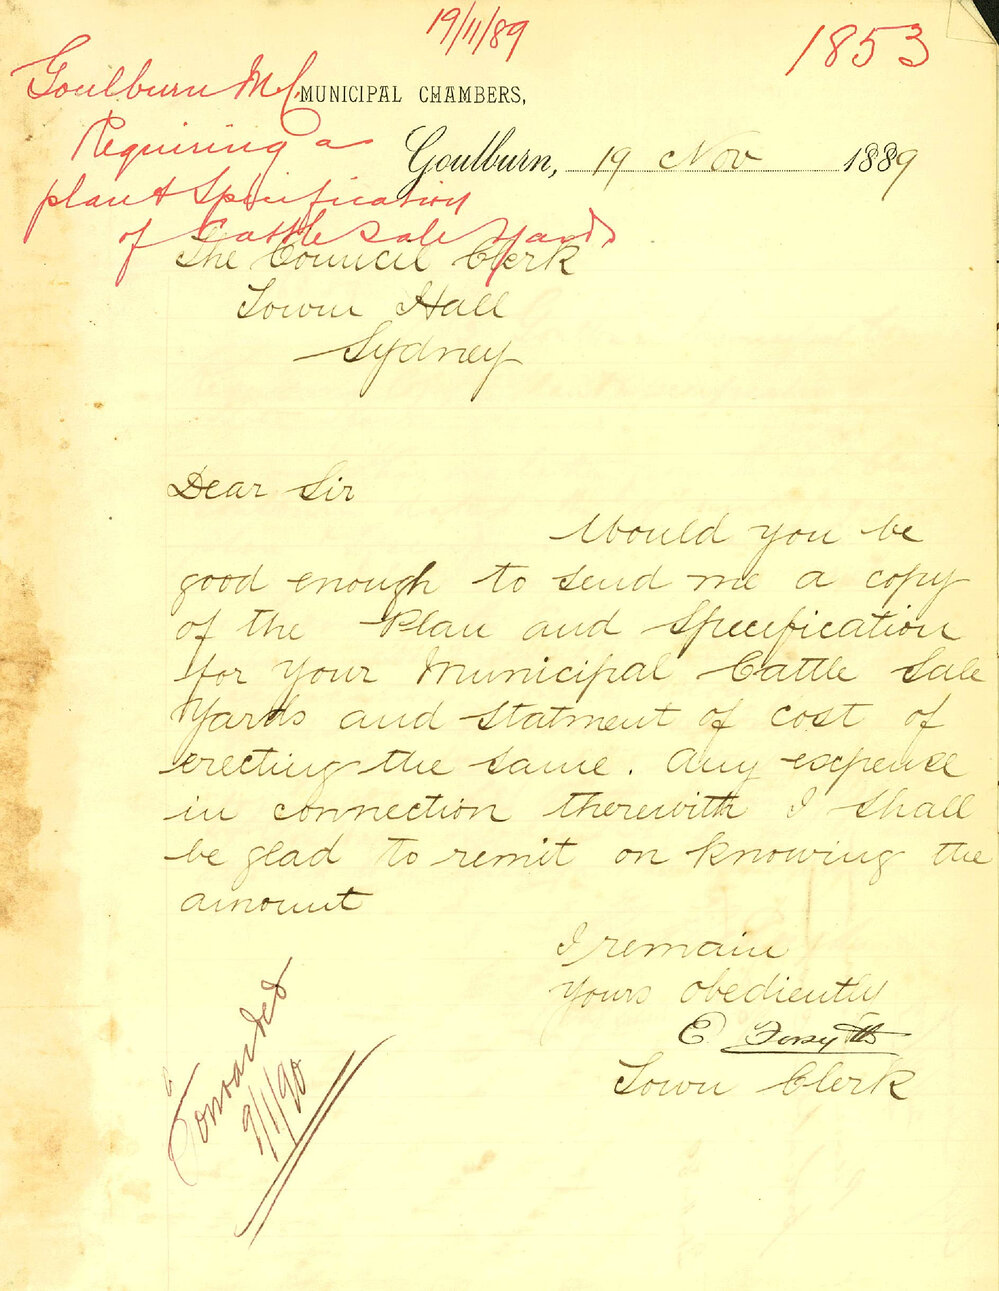 19/11/89
1853
Goulburn M.C.
Requiring a
plan & Specification
of Cattle Sale Yards
MUNICIPAL CHAMBERS,
Goulburn, 19 Nov 1889
The Council Clerk
Town Hall
Sydney
Dear Sir
Would you be
good enough to send me a copy
of the Plan and Specification
for Your Municipal Cattle Sale
Yards and statment of cost of
erecting the same. Any expense
in connection therewith I shall
be glad to remit on knowing the
amount
I remain
Yours obediently
E Forsyth
Town Clerk
Forwarded
9/1/90